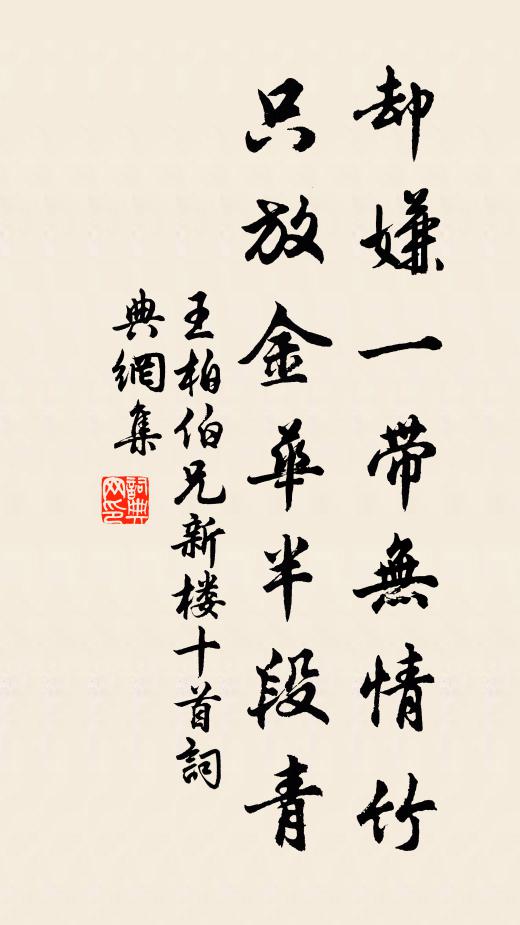 却嫌一带無情竹
只放金華半段青
王柏伯兄新楼十首詞
典網集
詞典
网印